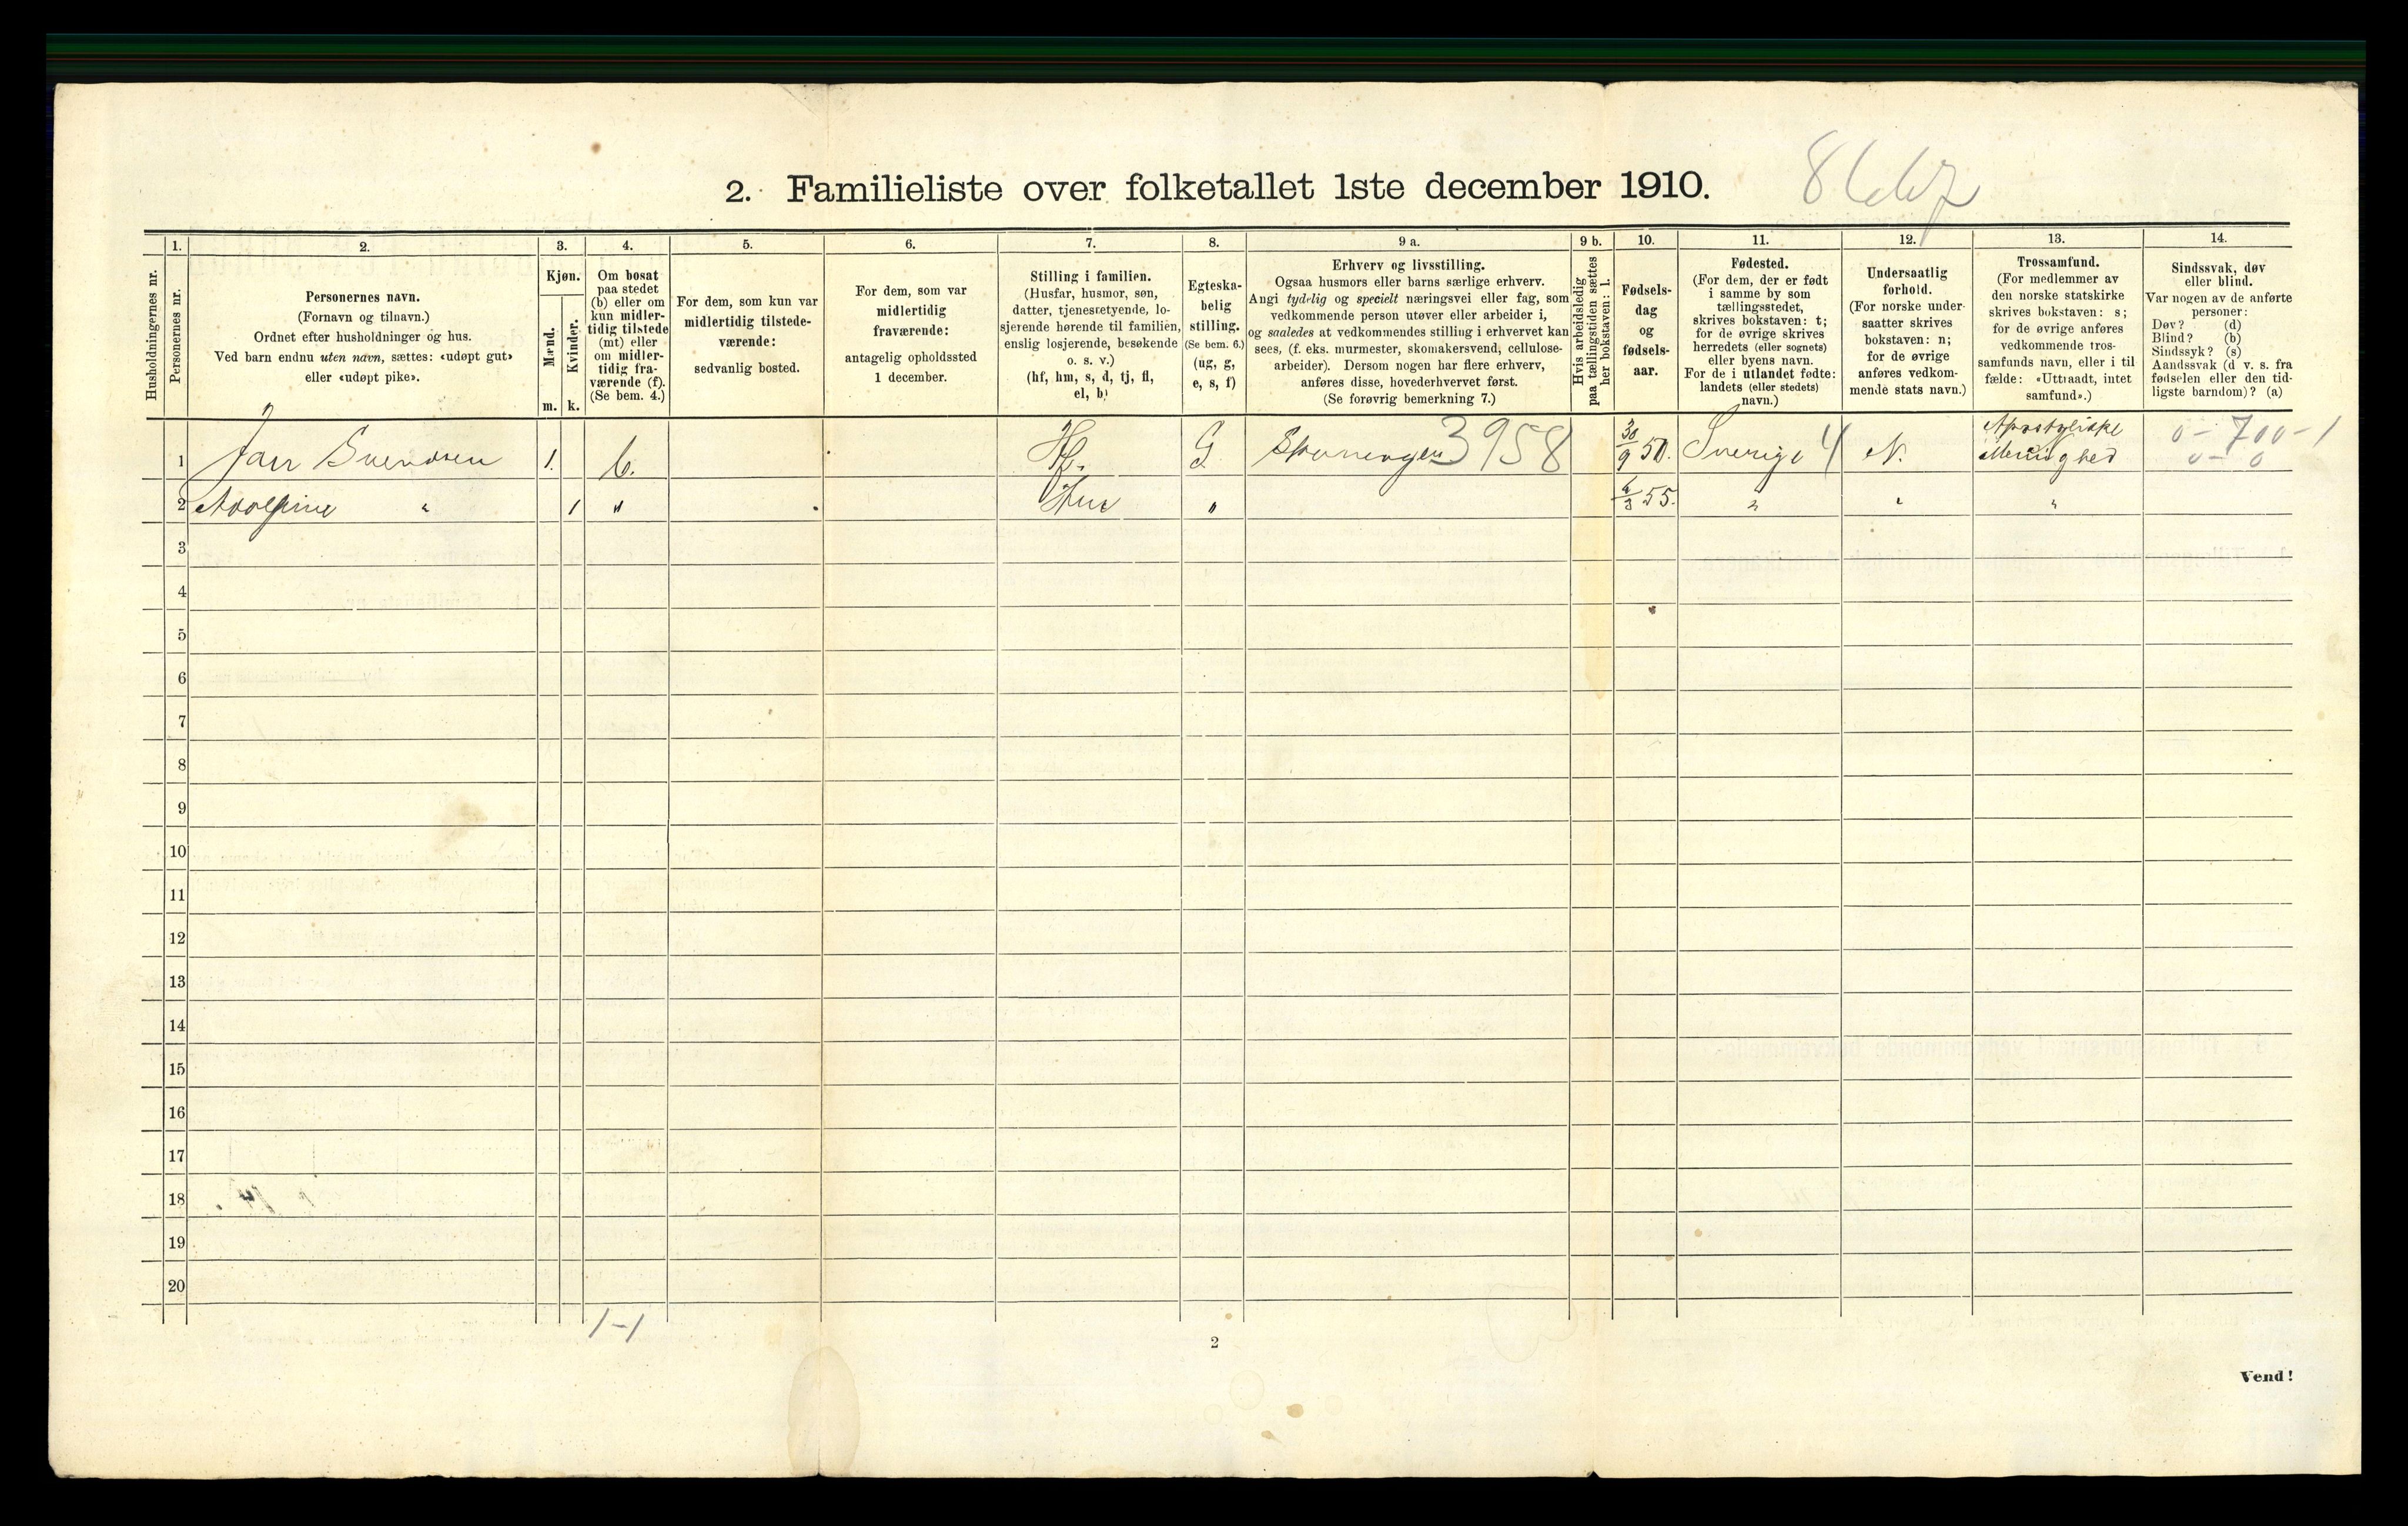 2. Familieliste over folketallet 1ste december 1910.
Husholdningernes nr.
1.
Personernes nr.
2.
Personernes navn.
(Fornavn og tilnavn.)
Ordnet efter husholdninger og hus.
Ved barn endnu uten navn, sættes: «udøpt gut»
eller «udøpt pike».
3.
Kjøn.
Mænd.
Kvinder.
m. k.
4.
Om bosat
paa stedet
(b) eller om
kun midler-
tidig tilstede
(mt) eller
om midler-
tidig fra-
værende (f).
(Se bem. 4.)
5.
For dem, som kun var
midlertidig tilstede-
værende:
sedvanlig bosted.
6.
For dem, som var
midlertidig
fraværende:
antagelig opholdssted
1 december.
7.
Stilling i familien.
(Husfar, husmor, søn,
datter, tjenestyende, lo-
sjerende hørende til familien,
enslig losjerende, besøkende
o. s. v.)
(hf, hm, s, d, tj, fl,
el, b)
8.
Egteska-
belig
stilling.
(Se bem. 6.)
(ug, g,
e, s, f)
9 a.
Erhverv og livsstilling.
Ogsaa husmors eller barns særlige erhverv.
Angi tydelig og specielt næringsvei eller fag, som
vedkommende person utøver eller arbeider i,
og saaledes at vedkommendes stilling i erhvervet kan
sees, (f. eks. murmester, skomakersvend, cellulose-
arbeider). Dersom nogen har flere erhverv,
anføres disse, hovederhvervet først.
(Se forøvrig bemerkning 7.)
9 b.
Hvis arbeidsledig
paa tællingstiden sættes
her bokstaven: l.
10.
Fødsels-
dag
og
fødsels-
aar.
11.
Fødested.
(For dem, der er født
i samme by som
tællingsstedet,
skrives bokstaven: t;
for de øvrige skrives
herredets (eller sognets)
eller byens navn.
For de i utlandet fødte:
landets (eller stedets)
navn.)
12.
Undersaatlig
forhold.
(For norske under-
saatter skrives
bokstaven: n;
for de øvrige
anføres vedkom-
mende stats navn.)
13.
Trossamfund.
(For medlemmer av
den norske statskirke
skrives bokstaven: s;
for de øvrige anføres
vedkommende tros-
samfunds navn, eller i til
fælde: «Uttraadt, intet
samfund».)
14.
Sindssvak, døv
eller blind.
Var nogen av de anførte
personer:
Døv? (d)
Blind? (b)
Sindssyk? (s)
Aandssvak (d v. s. fra
fødselen eller den tid-
ligste barndom)? (a)
1 Jarr Svendsen 1. b. Hf. G 3958 30/9 50. Sverige 4 N. Apostyliske Menighed 0-700-1
0-0
2 Adolfine " 1 " Hus " 55. " " "
3
4
5
6
7
8
9
10
11
12
13
14
15
16
17
18
19
20
1-1
2
Vend!